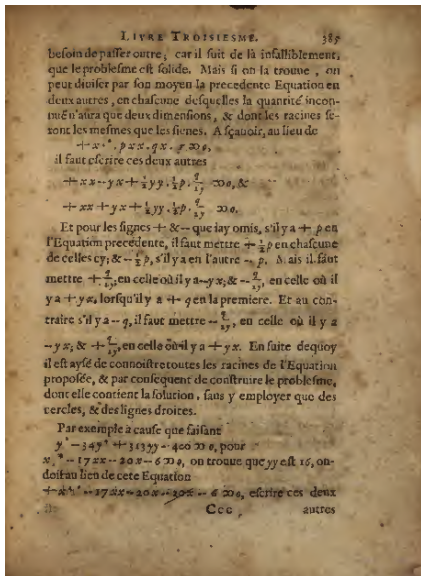 LIVRE TROISIESME. 385
besoin de passer outre; car il suit de là infalliblement,
que le problesme est solide. Mais si on la trouve, on
peut diviser par son moyen la precedente Equation en
deux autres, en chascune desquelles la quantité incon-
nuë n'aura que deux dimensions, & dont les racines se-
ront les mesmes que les sienes. A sçavoir, au lieu de
+ x⁴ * . p x x . q x . r ∞ 0,
il faut escrire ces deux autres
+ x x -- y x + ½ y y . ½ p . q/2y ∞ 0, &
+ x x + y x + ½ y y . ½ p . q/2y ∞ 0.
Et pour les signes + & -- que iay omis, s'il y a + p en
l'Equation precedente, il faut mettre + ½ p en chascune
de celles cy; & -- ½ p, s'il y a en l'autre -- p. Mais il faut
mettre + q/2y, en celle où il y a -- y x; & -- q/2y, en celle où il
y a + y x, lorsqu'il y a + q en la premiere. Et au con-
traire s'il y a -- q, il faut mettre -- q/2y, en celle où il y a
-- y x; & + q/2y, en celle où il y a + y x. En suite dequoy
il est aysé de connoistre toutes les racines de l'Equation
proposée, & par consequent de construire le problesme,
dont elle contient la solution, sans y employer que des
cercles, & des lignes droites.
Par exemple à cause que faisant
y⁶ -- 34 y⁴ + 313 y y -- 400 ∞ 0, pour
x⁴ * -- 17 x x -- 20 x -- 6 ∞ 0, on trouve que y y est 16, on
doit au lieu de cete Equation
+ x⁴ * -- 17 x x -- 20 x -- 6 ∞ 0, escrire ces deux
Ccc autres